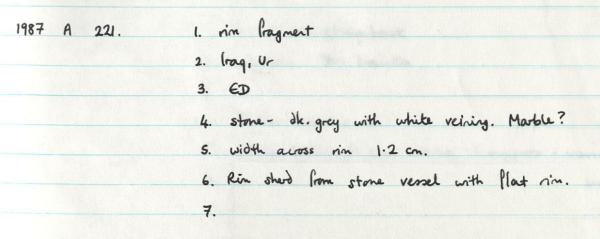 1987 A 221. 1. rim fragment
2. Iraq, Ur
3. ED
4. stone - dk. grey with white veining. Marble?
5. width across rim 1.2 cm.
6. Rim sherd from stone vessel with flat rim.
7.